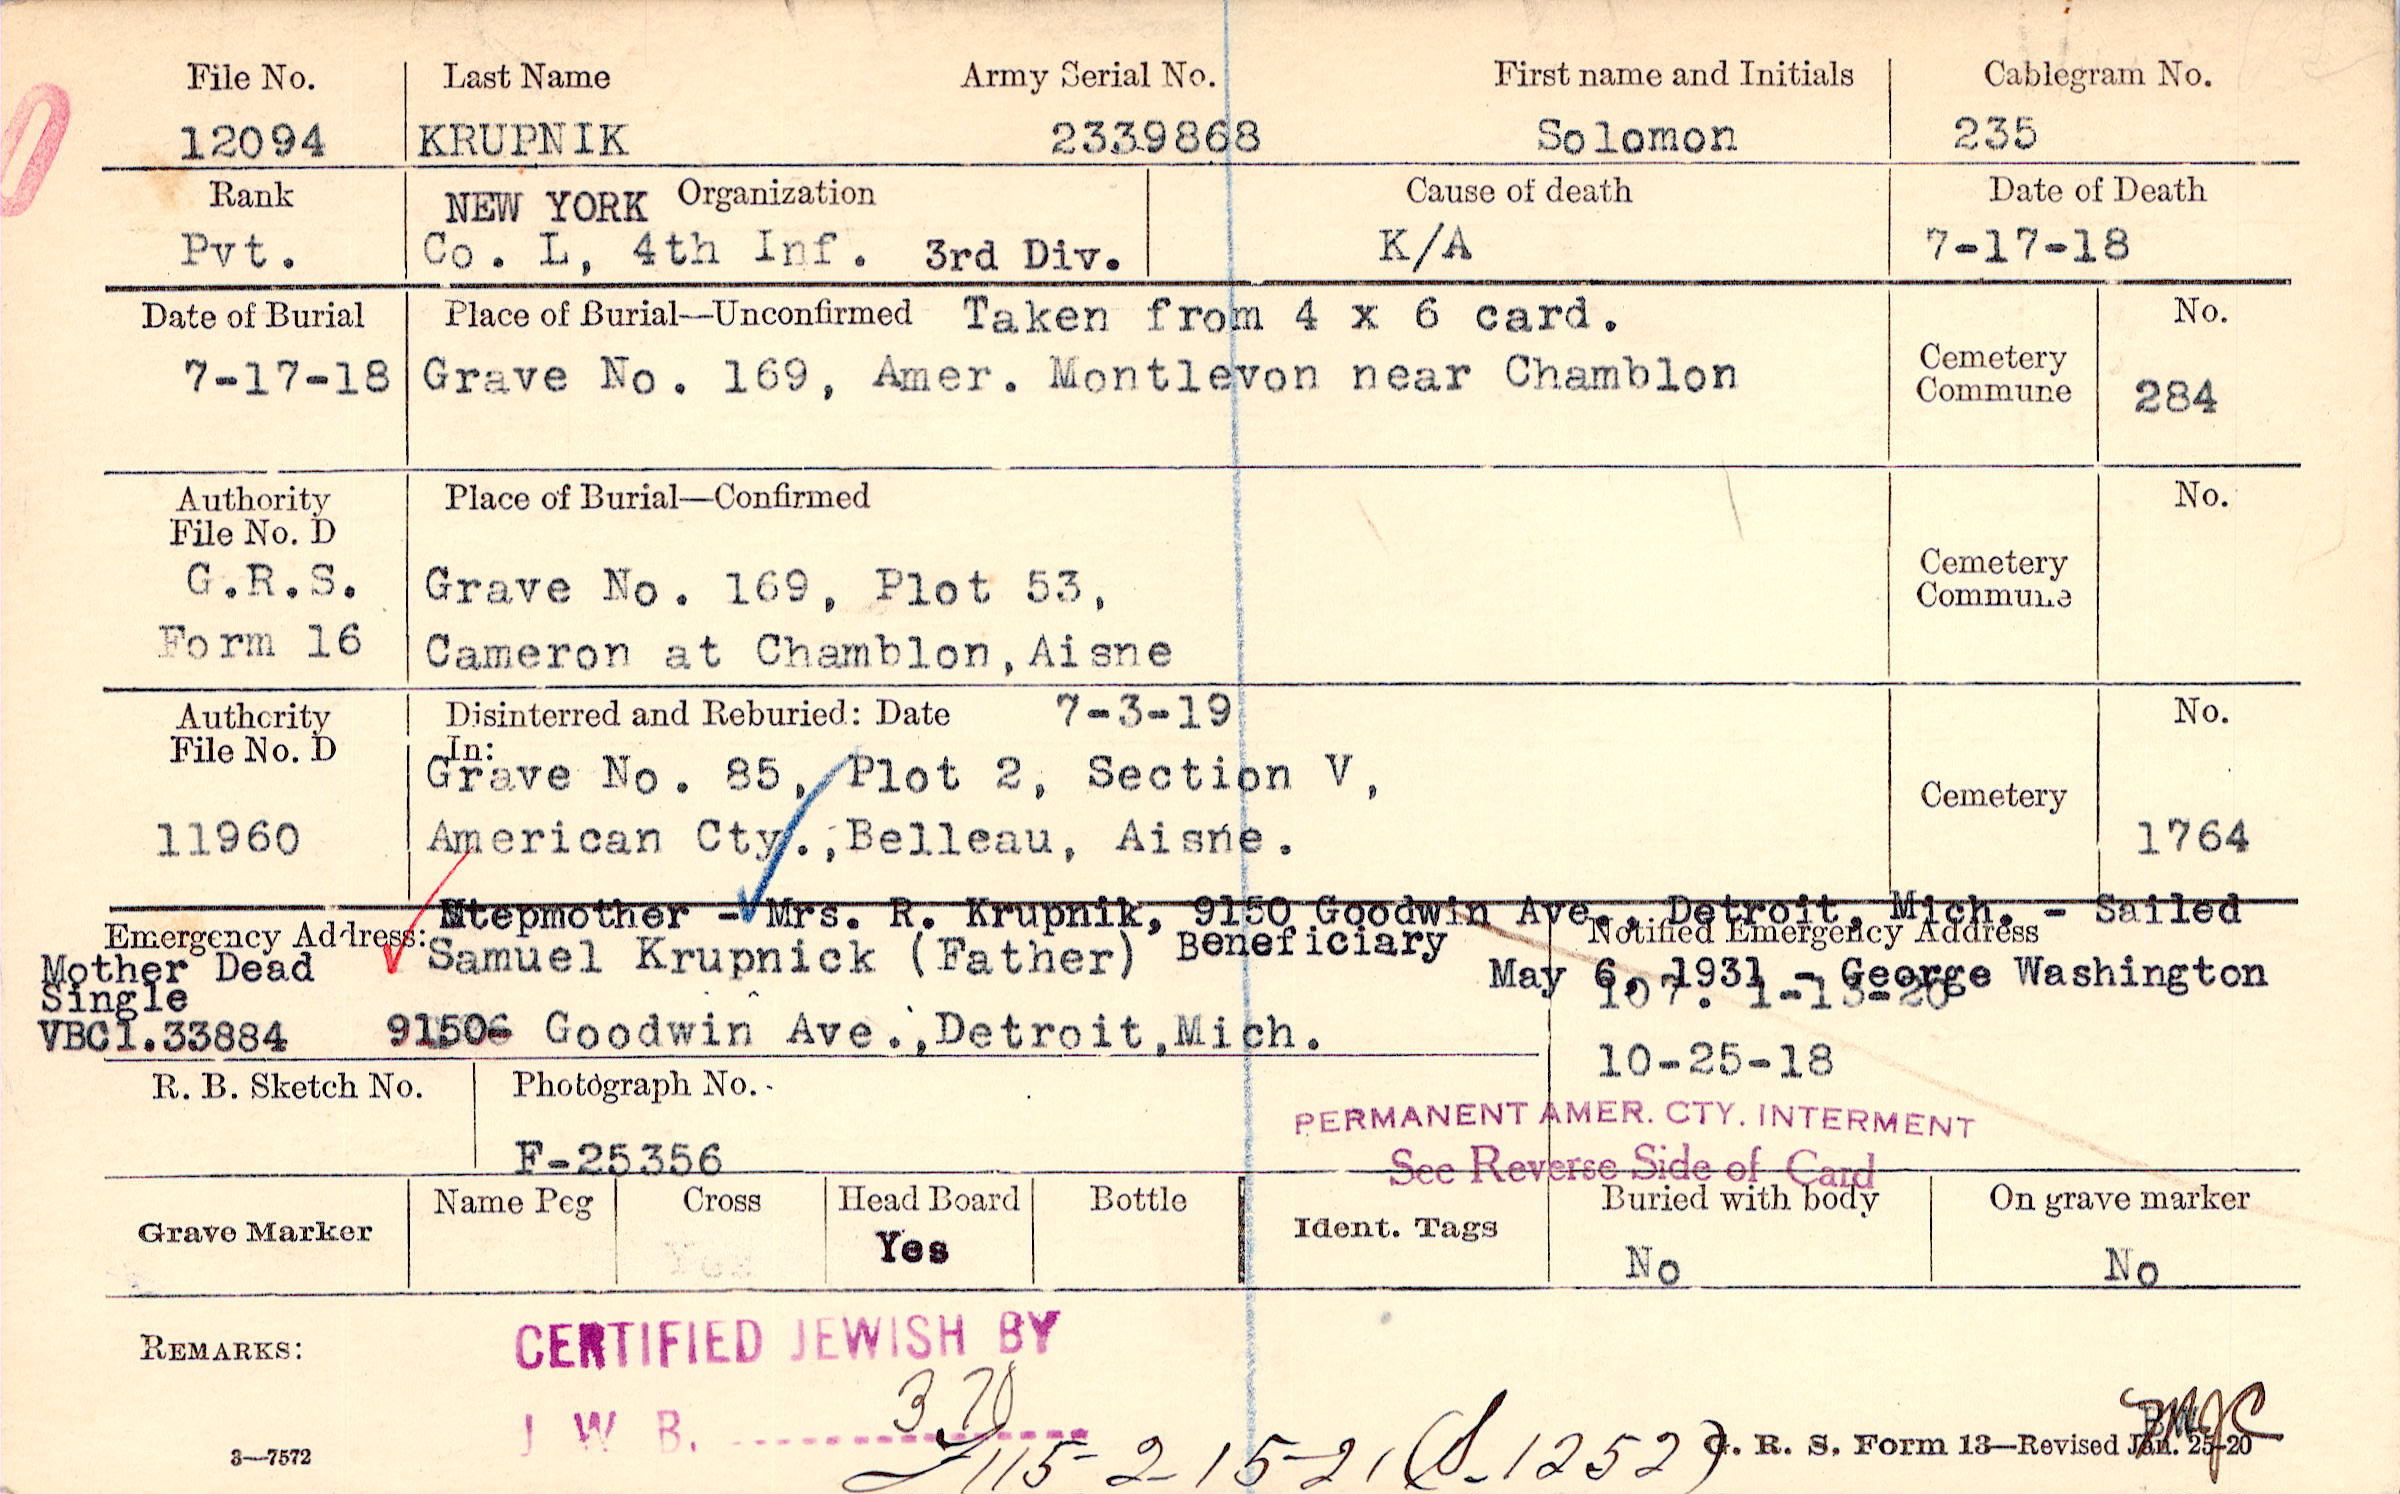 File No. Last Name Army Serial No. First name and Initials Cablegram No.
12094 KRUPNIK 2339868 Solomon 235
Rank NEW YORK Organization Cause of death Date of Death
Pvt. Co. L, 4th Inf. 3rd Div. K/A 7-17-18
Date of Burial Place of Burial—Unconfirmed Taken from 4 x 6 card. No.
7-17-18 Grave No. 169, Amer. Montlevon near Chamblon Cemetery Commune 284
Authority Place of Burial—Confirmed No.
File No. D
G.R.S. Grave No. 169, Plot 53, Cemetery Commune
Form 16 Cameron at Chamblon, Aisne
Authority Disinterred and Reburied: Date 7-3-19 No.
File No. D In:
Grave No. 85, Plot 2, Section V, Cemetery
11960 American Cty., Belleau, Aisne. 1764
Stepmother - Mrs. R. Krupnik, 9150 Goodwin Ave., Detroit, Mich. - Sailed
Emergency Address: Samuel Krupnick (Father) Beneficiary Notified Emergency Address
Mother Dead May 6, 1931 - George Washington
Single 107. 1-13-20
VBC1.33884 9150 Goodwin Ave., Detroit, Mich.
10-25-18
R. B. Sketch No. Photograph No.
PERMANENT AMER. CTY. INTERMENT
F-25356 See Reverse Side of Card
Grave Marker Name Peg Cross Head Board Bottle Ident. Tags Buried with body On grave marker
Yes Yes No No
REMARKS: CERTIFIED JEWISH BY
370
J W B.
115-2-15-21 (S-1252)
3—7572 G. R. S. Form 13—Revised Jan. 25-20